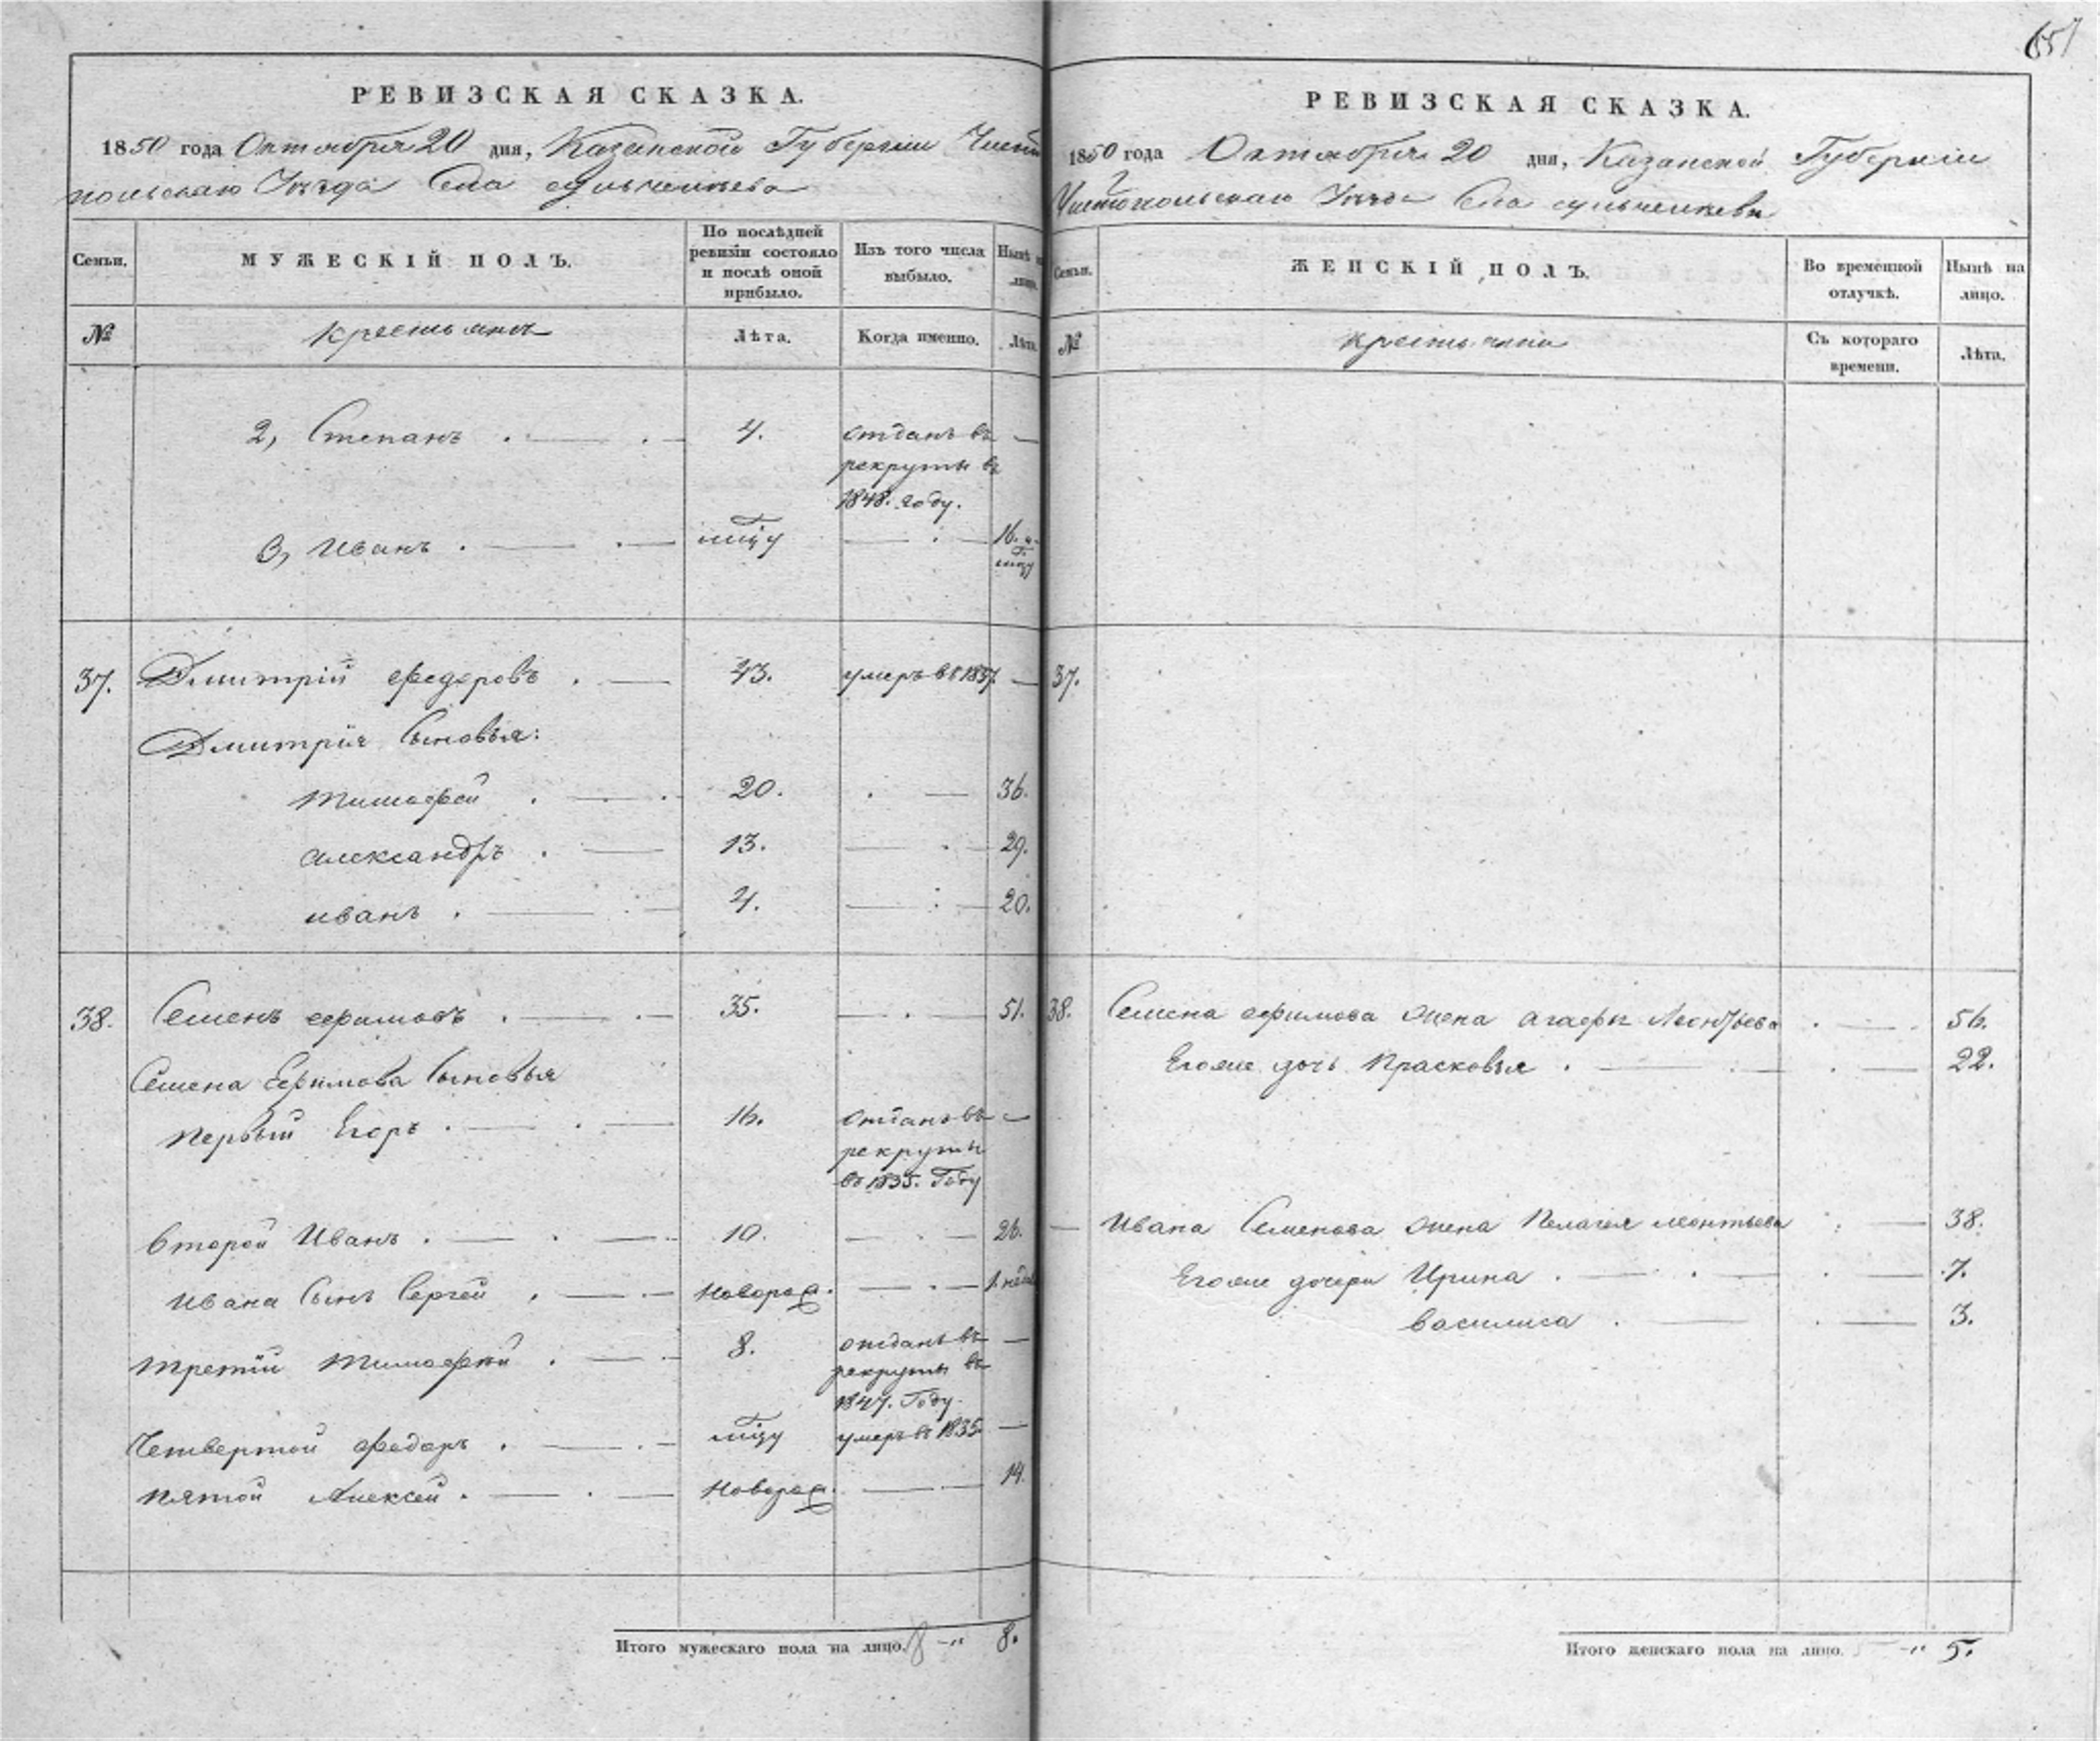 651
РЕВИЗСКАЯ СКАЗКА.
1850 года Октября 20 дня, Казанской Губерніи Чисто
польскаго Уезда Села
Семьи. МУЖЕСКІЙ ПОЛЪ. По послѣдней ревизіи состояло и послѣ оной прибыло. Изъ того числа выбыло. Нынѣ на лицо.
№ крестьяне Лѣта. Когда именно. Лѣта.
2, Степанъ 4. отданъ въ —
рекруты въ
1848. году.
3, Иванъ 16. и
37. Дмитрій Федоровъ 43. умеръ въ 1837. —
Дмитрія Сыновья:
Тимофей 20. 36.
Александръ 13. 29.
Иванъ 4. 20.
38. Семенъ Ефимовъ 35. 51.
Семена Ефимова Сыновья
Первый Егоръ 16. отданъ въ —
рекруты
въ 1835. Году
Второй Иванъ 10. 26.
Ивана Сынъ Сергей новорож. 1 неде
Третій Тимофей 8. отданъ въ —
рекруты въ
1847. Году.
Четвертой Федоръ умеръ въ 1835. —
Пятой Алексей новорож. 14.
Итого мужескаго пола на лицо. 8 —" 8.
РЕВИЗСКАЯ СКАЗКА.
1850 года Октября 20 дня, Казанской Губерніи
Чистопольскаго Уезда Села
Семьи. ЖЕНСКІЙ ПОЛЪ. Во временной отлучкѣ. Нынѣ на лицо.
№ крестьяне Съ котораго времени. Лѣта.
37.
38. Семена Ефимова жена Агафья Леонтьева 56.
Егоже дочь Прасковья 22.
— Ивана Семенова жена Пелагея Леонтьева 38.
Егоже дочери Ирина 7.
Василиса 3.
Итого женскаго пола на лицо. 5 —" 5.